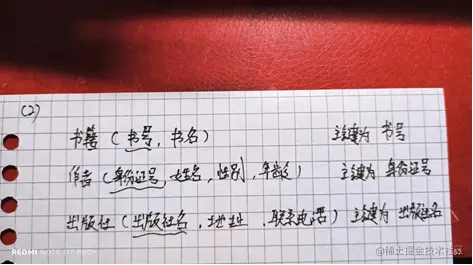 (2)
书籍(书号,书名) 主键为 书号
作者(身份证号,姓名,性别,年龄) 主键为 身份证号
出版社(出版社名,地址,联系电话) 主键为 出版社名
REDMI NOTE
@稀土掘金技术社区